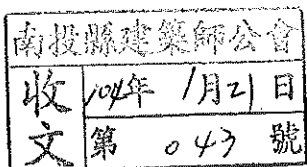 南投縣建築師公會
收文
104年 1月21日
第 043 號